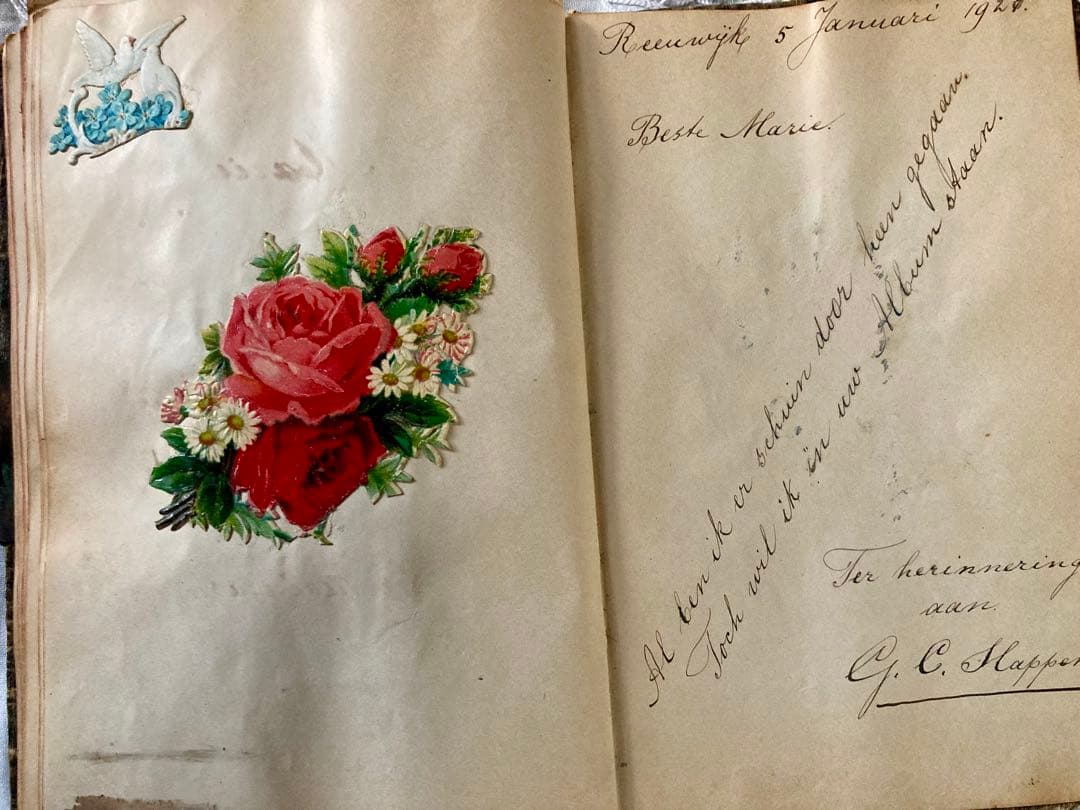 Reeuwijk 5 Januari
Beste Marie.
Al ben ik er schuin door heen gegaan.
Toch wil ik in uw Album staan.
Ter herinnering
aan.
G. C.